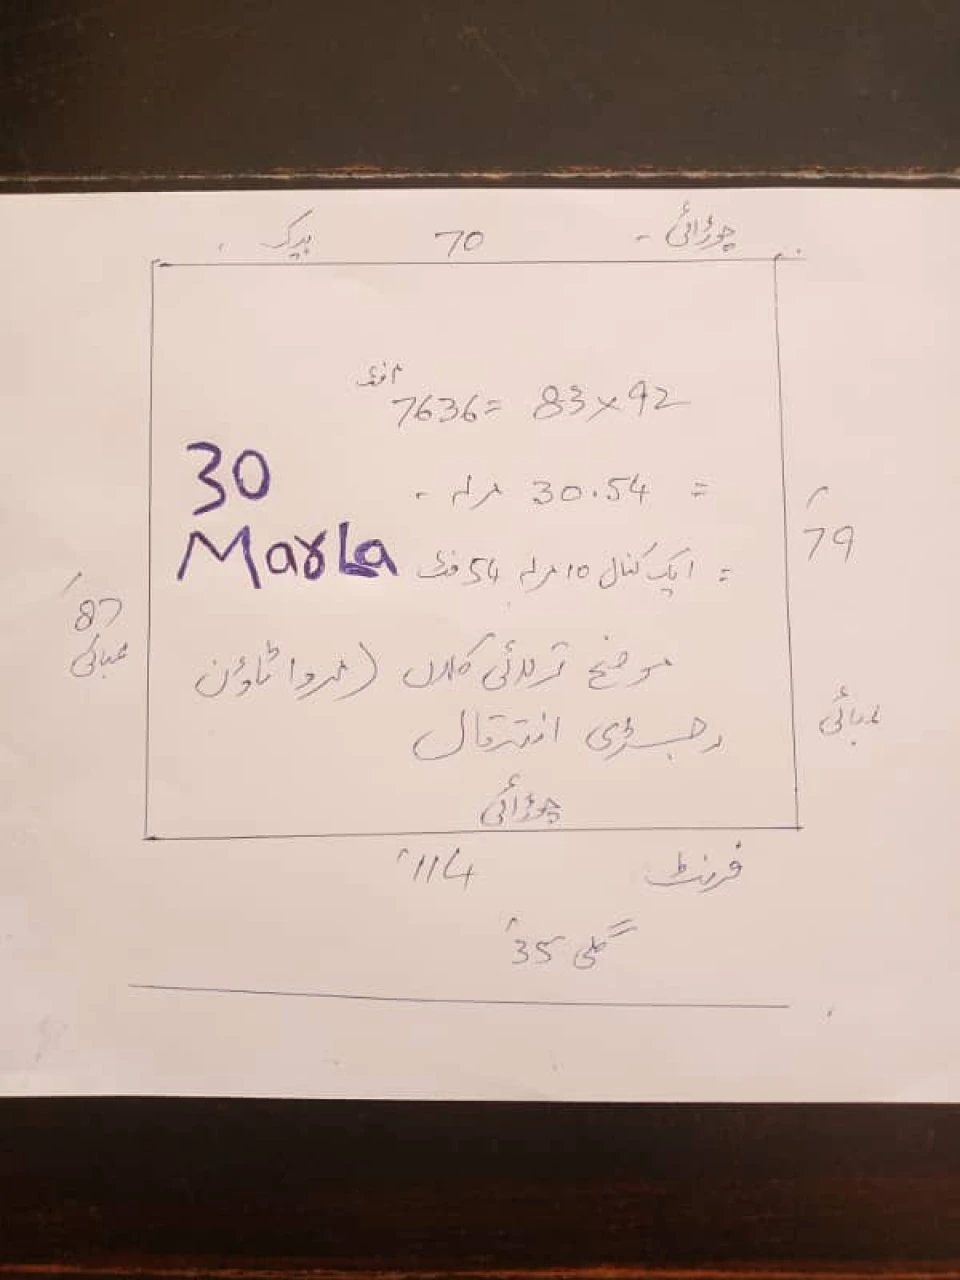 چوڑائی - 70 بیک
فٹ 7636 = 83 x 92
30
Marla
= 30.54 مرلہ -
= ایک کنال 10 مرلہ 54 فٹ
79
لمبائی
87
لمبائی
موضع ترلائی کلاں (مروا ٹاؤن
رجسٹری انتقال
چوڑائی
فرنٹ 114'
گلی 35'